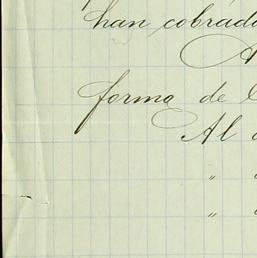 han cobrado
A
forma de
Al
"
"